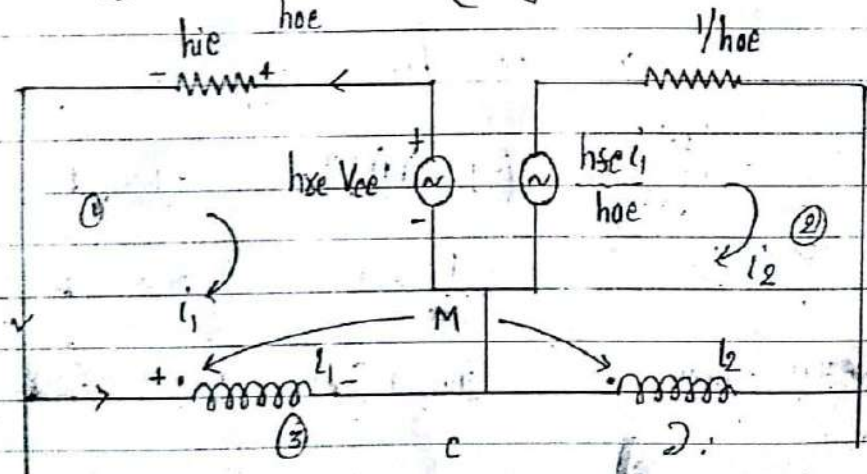 hoe
hie
1/hoe
- +
+
hre Vce
-
hfe i1
hoe
①
②
i1
i2
M
+ .
L1
-
.
L2
③
C
2.